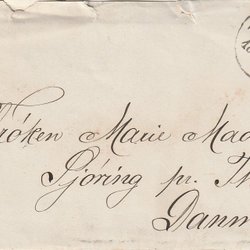 röken Marie Mad
Sjöring pr. Th
Dann